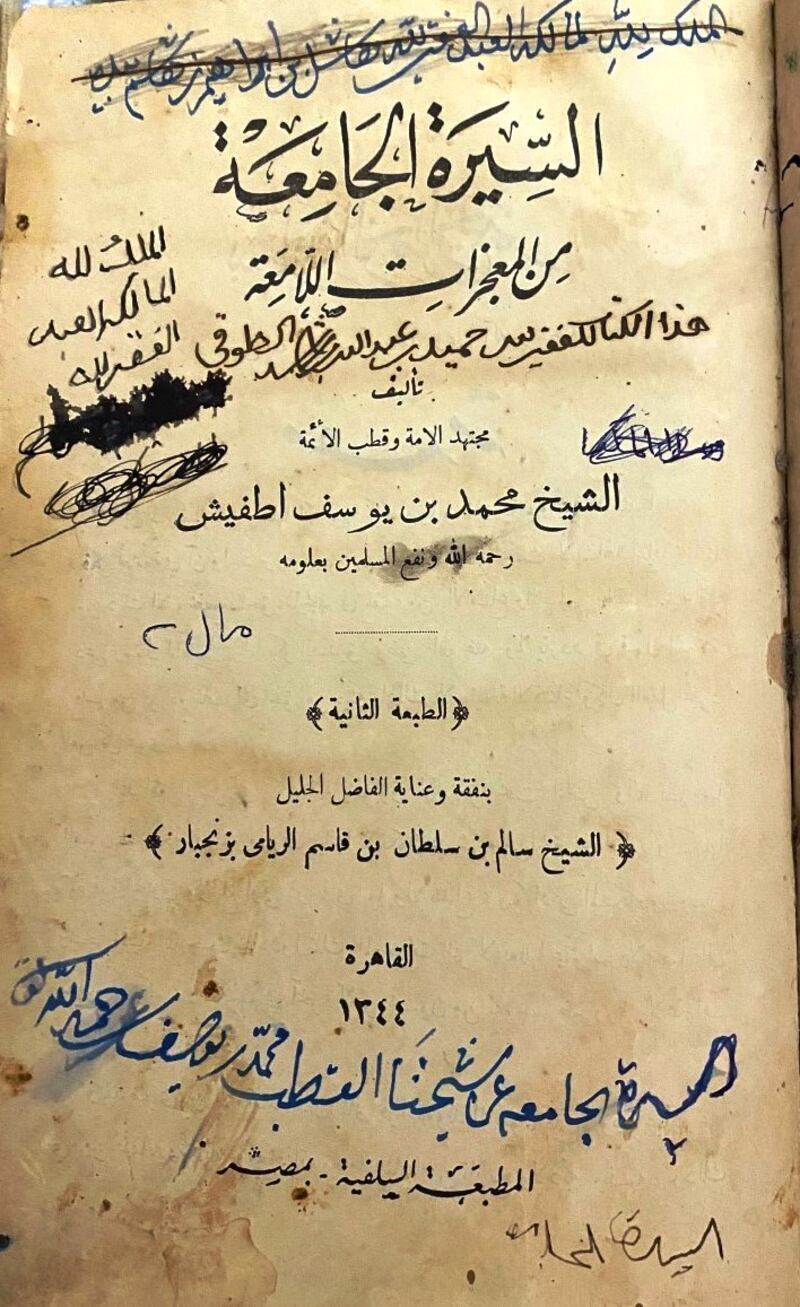 الملك لله لمالكه العبد الفقير لله بن ابراهيم بن
السِّيرَةُ الجَامِعَةُ
مِنَ المعجزاتِ اللَّامَعِة
الملكُ لله
المالكه العبد
الفقير لله
هذا الكتاب للفقير حميد بن عبدالله الطوقي
تأليف
مجتهد الامة وقطب الأئمة
الشيخ محمد بن يوسف اطفيش
رحمه الله ونفع المسلمين بعلومه
مال
﴿الطبعة الثانية﴾
بنفقة وعناية الفاضل الجليل
﴿ الشيخ سالم بن سلطان بن قاسم الريامى بزنجبار ﴾
القاهرة
١٣٤٤
السيرة الجامعه عن شيخنا القطب محمّد بن يوسف رحمه الله
المطبعَة السلفية - بمصر
السيرة